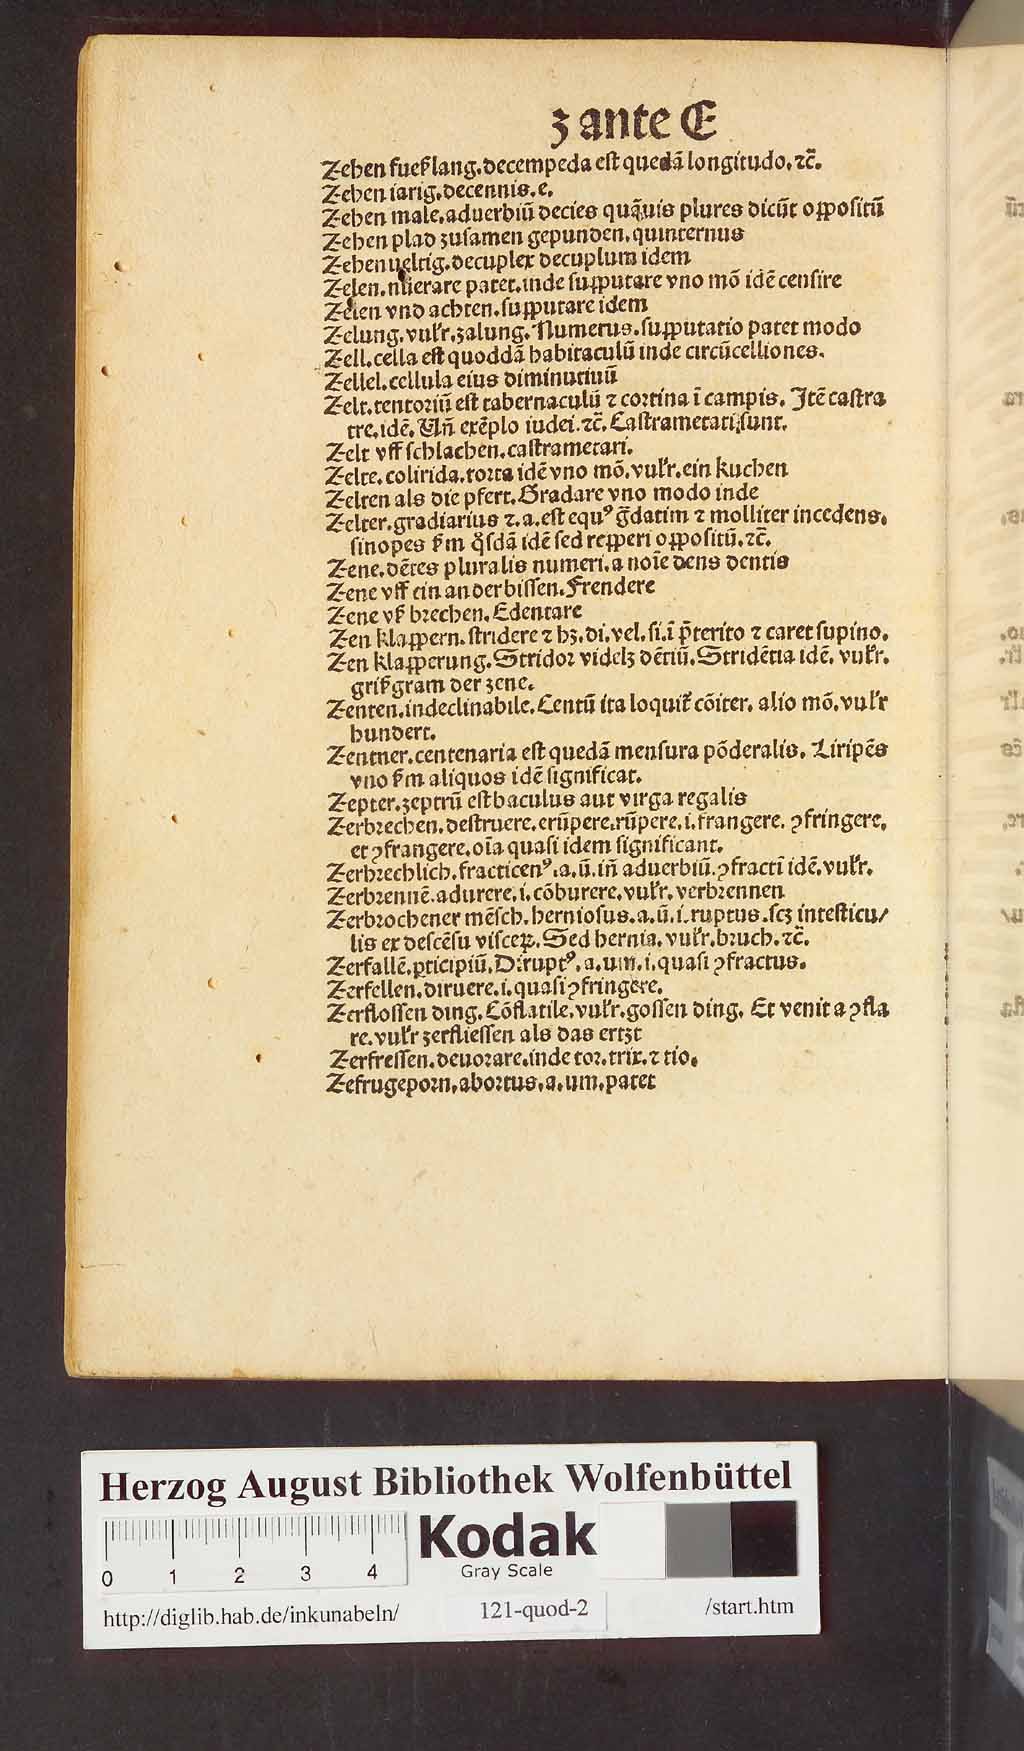 ʒ ante E
Zehen fueſʒ lang. decempeda eſt quedā longitudo. ⁊c̄.
Zehen iarig. decennis. e.
Zehen male. aduerbiū decies quāuis plures dicūt oppoſitū
Zehen plad zuſamen gepunden. quinternus
Zehen ueltig. decuplex decuplum idem
Zelen. nūerare patet. inde ſupputare vno mō idē cenſire
Zelen vnd achten. ſupputare idem
Zelung. vulr̄. zalung. Numerus. ſupputatio patet modo
Zell. cella eſt quoddā habitaculū inde circūcelliones.
Zellel. cellula eius diminutiuū
Zelt. tentoriū eſt tabernaculū ⁊ cortina ī campis. Itē caſtra
tre. idē. Un̄ exēplo iudei. ⁊c̄. Caſtrametati ſunt.
Zelt vff ſchlachen. caſtrametari.
Zelte. colirida. torta idē vno mō. vulr̄. ein kuchen
Zelten als die pfert. Gradare vno modo inde
Zelter. gradiarius ⁊. a. eſt equꝰ ḡdatim ⁊ molliter incedens.
ſinopes ẜm q̊ſdā idē ſed repperi oppoſitū. ⁊c̄.
Zene. dētes pluralis numeri. a noīe dens dentis
Zene vff ein ander biſſen. Frendere
Zene vſʒ brechen. Edentare
Zen klappern. ſtridere ⁊ hʒ. di. vel. ſi. ī p̄terito ⁊ caret ſupino.
Zen klapperung. Stridor videlʒ dētiū. Stridētia idē. vulr̄.
griſʒgram der zene.
Zenten. indeclinabile. Centū ita loquit᷑ cōiter. alio mō. vulr̄
hundert.
Zentner. centenaria eſt quedā menſura pōderalis. Liripēs
vno ẜm aliquos idē ſignificat.
Zepter. zeptrū eſt baculus aut virga regalis
Zerbrechen. deſtruere. erūpere. rūpere. i. frangere. ꝯfringere.
et ꝯfrangere. oīa quaſi idem ſignificant.
Zerbrechlich. fracticenꝰ. a. ū. in̄ aduerbiū. ꝯfractī idē. vulr̄.
Zerbrennē. adurere. i. cōburere. vulr̄. verbrennen
Zerbrochener mēſch. hernioſus. a. ū. i. ruptus. ſcʒ inteſticu/
lis ex deſcēſu viſceꝝ. Sed hernia. vulr̄. bruch. ⁊c̄.
Zerfallē. ꝑticipiū. Diruptꝰ. a. um. i. quaſi ꝯfractus.
Zerfellen. diruere. i. quaſi ꝯfringere.
Zerfloſſen ding. Cōflatile. vulr̄. goſſen ding. Et venit a ꝯfla
re. vulr̄ zerflieſſen als das ertzt
Zerfreſſen. deuorare. inde tor. trix. ⁊ tio.
Zefrugeporn. abortus. a. um. patet
Herzog August Bibliothek Wolfenbüttel
Kodak
Gray Scale
0 1 2 3 4
http://diglib.hab.de/inkunabeln/ 121-quod-2 /start.htm